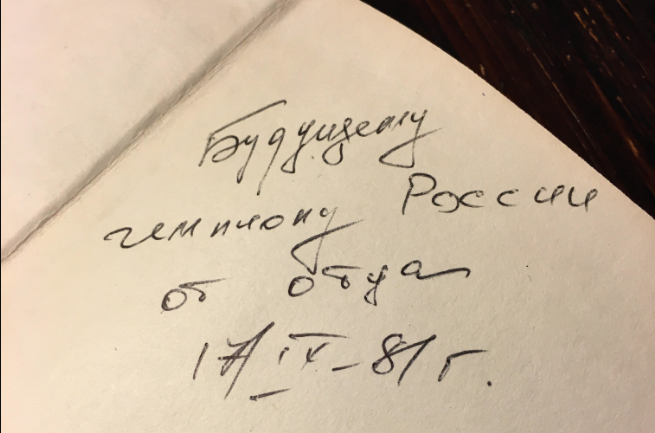 Будущему
чемпиону России
от отца
17/IX-81г.